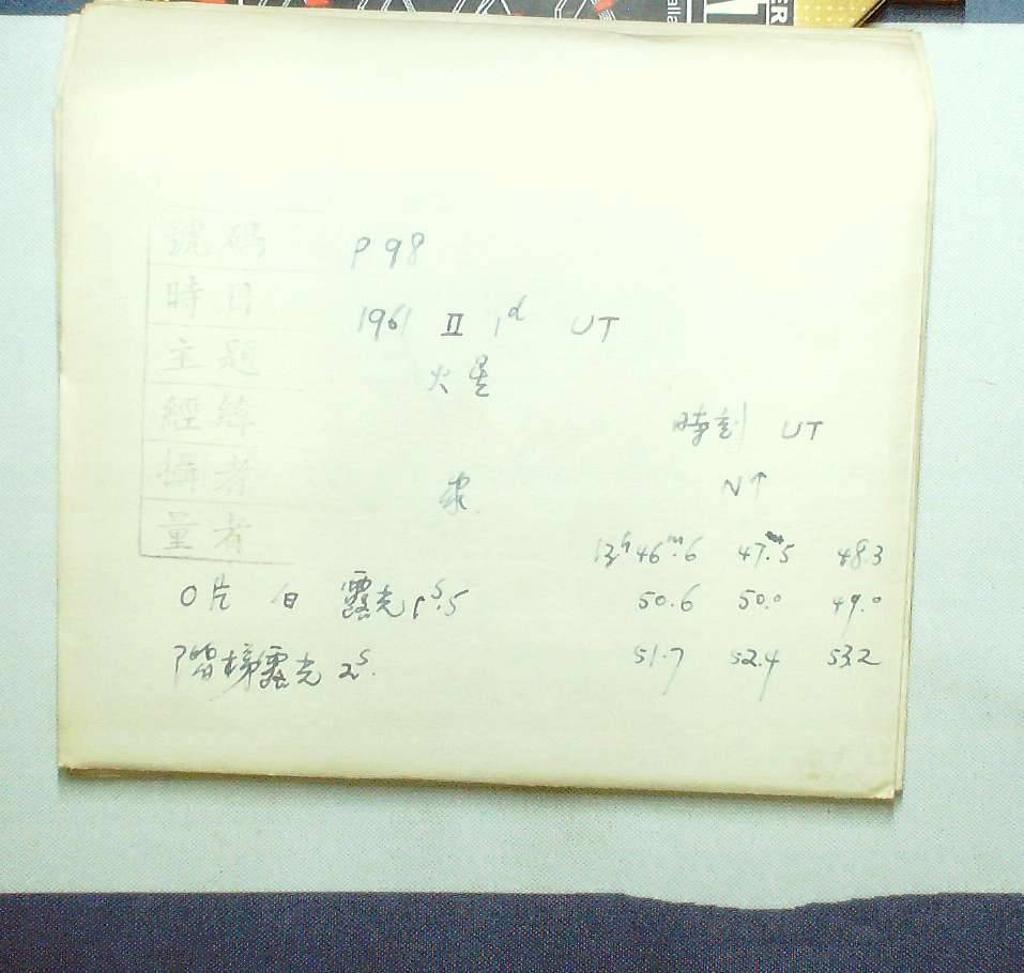 ER
號碼 P 98
時日 1961 II 1d UT
主題 火星
經緯 時刻 UT
攝者 N↑
量者 13h 46m.6 47m.5 48.3
O片 白 露光 1s.5 50.6 50.0 49.0
階梯露光 2s. 51.7 52.4 53.2